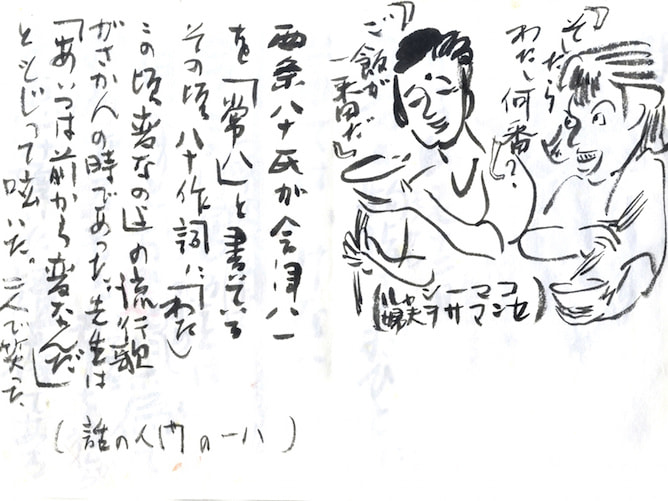 「そしたら
わたし何番?」
「ご飯が
一番だ」
(コマーシャル
センマサヲ夫婦)
西条八十氏が会津八一
を「常八」と書いている
その頃八十作詞に「わたし
この頃変なのよ」の流行歌
がさかんの時であった。先生は
「あいつは前から変なんだ」
ともじって呟いた。二人で笑った